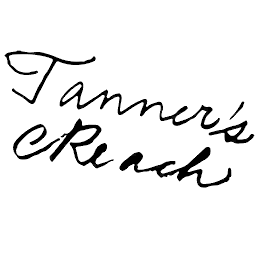 Tanner's
Reach